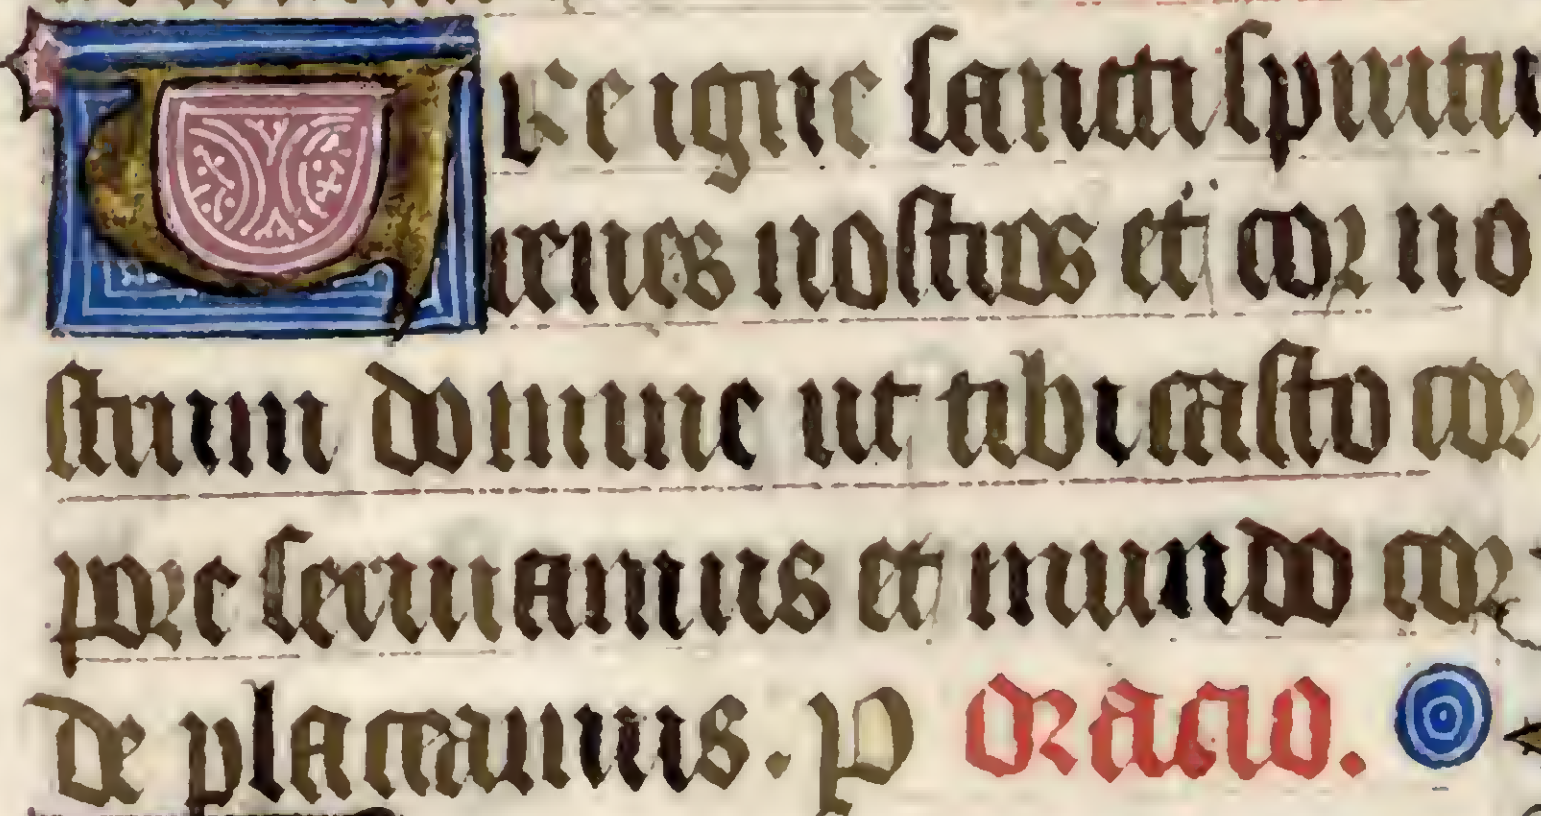 Ure igne sancti spiritus
renes nostros et cor no
strum domine ut tibi casto cor
pore seruiamus et mundo cor
de placeamus. p oracio.